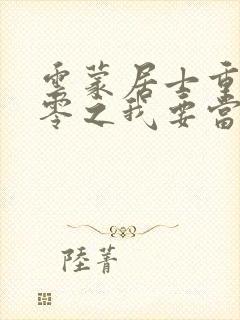 雲蒙居士重
零之我要當
陸菁